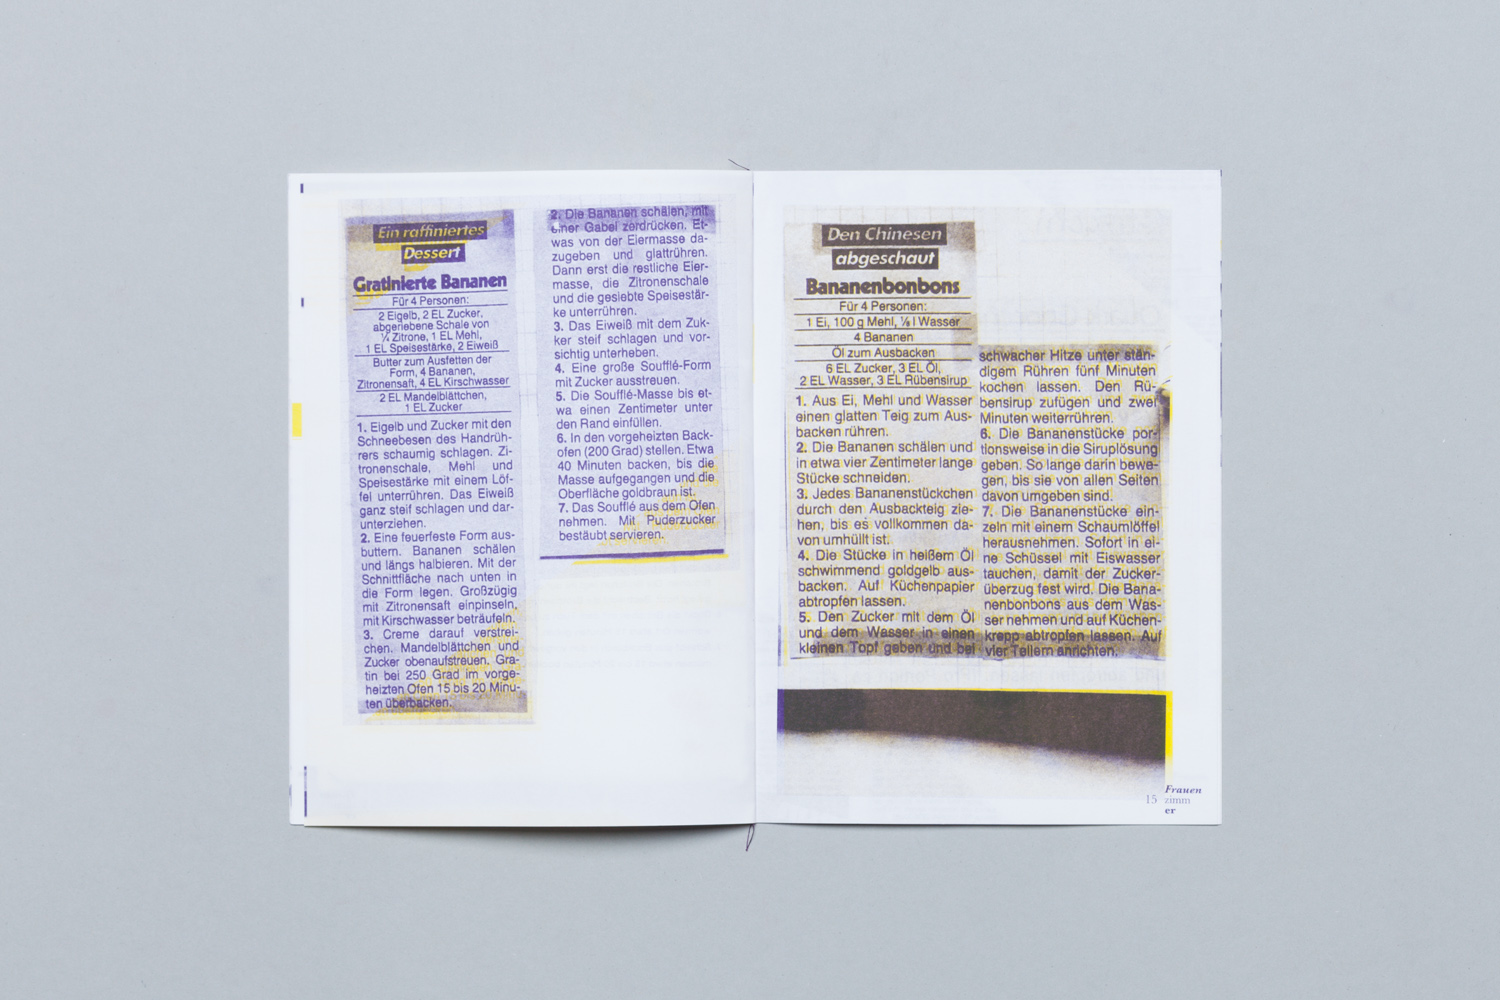 Ein raffiniertes
Dessert
Gratinierte Bananen
Für 4 Personen:
2 Eigelb, 2 EL Zucker,
abgeriebene Schale von
¼ Zitrone, 1 EL Mehl,
1 EL Speisestärke, 2 Eiweiß
Butter zum Ausfetten der
Form, 4 Bananen,
Zitronensaft, 4 EL Kirschwasser
2 EL Mandelblättchen,
1 EL Zucker
1. Eigelb und Zucker mit den
Schneebesen des Handrüh-
rers schaumig schlagen. Zi-
tronenschale, Mehl und
Speisestärke mit einem Löf-
fel unterrühren. Das Eiweiß
ganz steif schlagen und dar-
unterziehen.
2. Eine feuerfeste Form aus-
buttern. Bananen schälen
und längs halbieren. Mit der
Schnittfläche nach unten in
die Form legen. Großzügig
mit Zitronensaft einpinseln,
mit Kirschwasser beträufeln.
3. Creme darauf verstrei-
chen. Mandelblättchen und
Zucker obenaufstreuen. Gra-
tin bei 250 Grad im vorge-
heizten Ofen 15 bis 20 Minu-
ten überbacken.
2. Die Bananen schälen, mit
einer Gabel zerdrücken. Et-
was von der Eiermasse da-
zugeben und glattrühren.
Dann erst die restliche Eier-
masse, die Zitronenschale
und die gesiebte Speisestär-
ke unterrühren.
3. Das Eiweiß mit dem Zuk-
ker steif schlagen und vor-
sichtig unterheben.
4. Eine große Soufflé-Form
mit Zucker ausstreuen.
5. Die Soufflé-Masse bis et-
wa einen Zentimeter unter
den Rand einfüllen.
6. In den vorgeheizten Back-
ofen (200 Grad) stellen. Etwa
40 Minuten backen, bis die
Masse aufgegangen und die
Oberfläche goldbraun ist.
7. Das Soufflé aus dem Ofen
nehmen. Mit Puderzucker
bestäubt servieren.
Den Chinesen
abgeschaut
Bananenbonbons
Für 4 Personen:
1 Ei, 100 g Mehl, ⅛ l Wasser
4 Bananen
Öl zum Ausbacken
6 EL Zucker, 3 EL Öl,
2 EL Wasser, 3 EL Rübensirup
1. Aus Ei, Mehl und Wasser
einen glatten Teig zum Aus-
backen rühren.
2. Die Bananen schälen und
in etwa vier Zentimeter lange
Stücke schneiden.
3. Jedes Bananenstückchen
durch den Ausbackteig zie-
hen, bis es vollkommen da-
von umhüllt ist.
4. Die Stücke in heißem Öl
schwimmend goldgelb aus-
backen. Auf Küchenpapier
abtropfen lassen.
5. Den Zucker mit dem Öl
und dem Wasser in einen
kleinen Topf geben und bei
schwacher Hitze unter stän-
digem Rühren fünf Minuten
kochen lassen. Den Rü-
bensirup zufügen und zwei
Minuten weiterrühren.
6. Die Bananenstücke por-
tionsweise in die Siruplösung
geben. So lange darin bewe-
gen, bis sie von allen Seiten
davon umgeben sind.
7. Die Bananenstücke ein-
zeln mit einem Schaumlöffel
herausnehmen. Sofort in ei-
ne Schüssel mit Eiswasser
tauchen, damit der Zucker-
überzug fest wird. Die Bana-
nenbonbons aus dem Was-
ser nehmen und auf Küchen-
krepp abtropfen lassen. Auf
vier Tellern anrichten.
Frauen
15 zimm
er